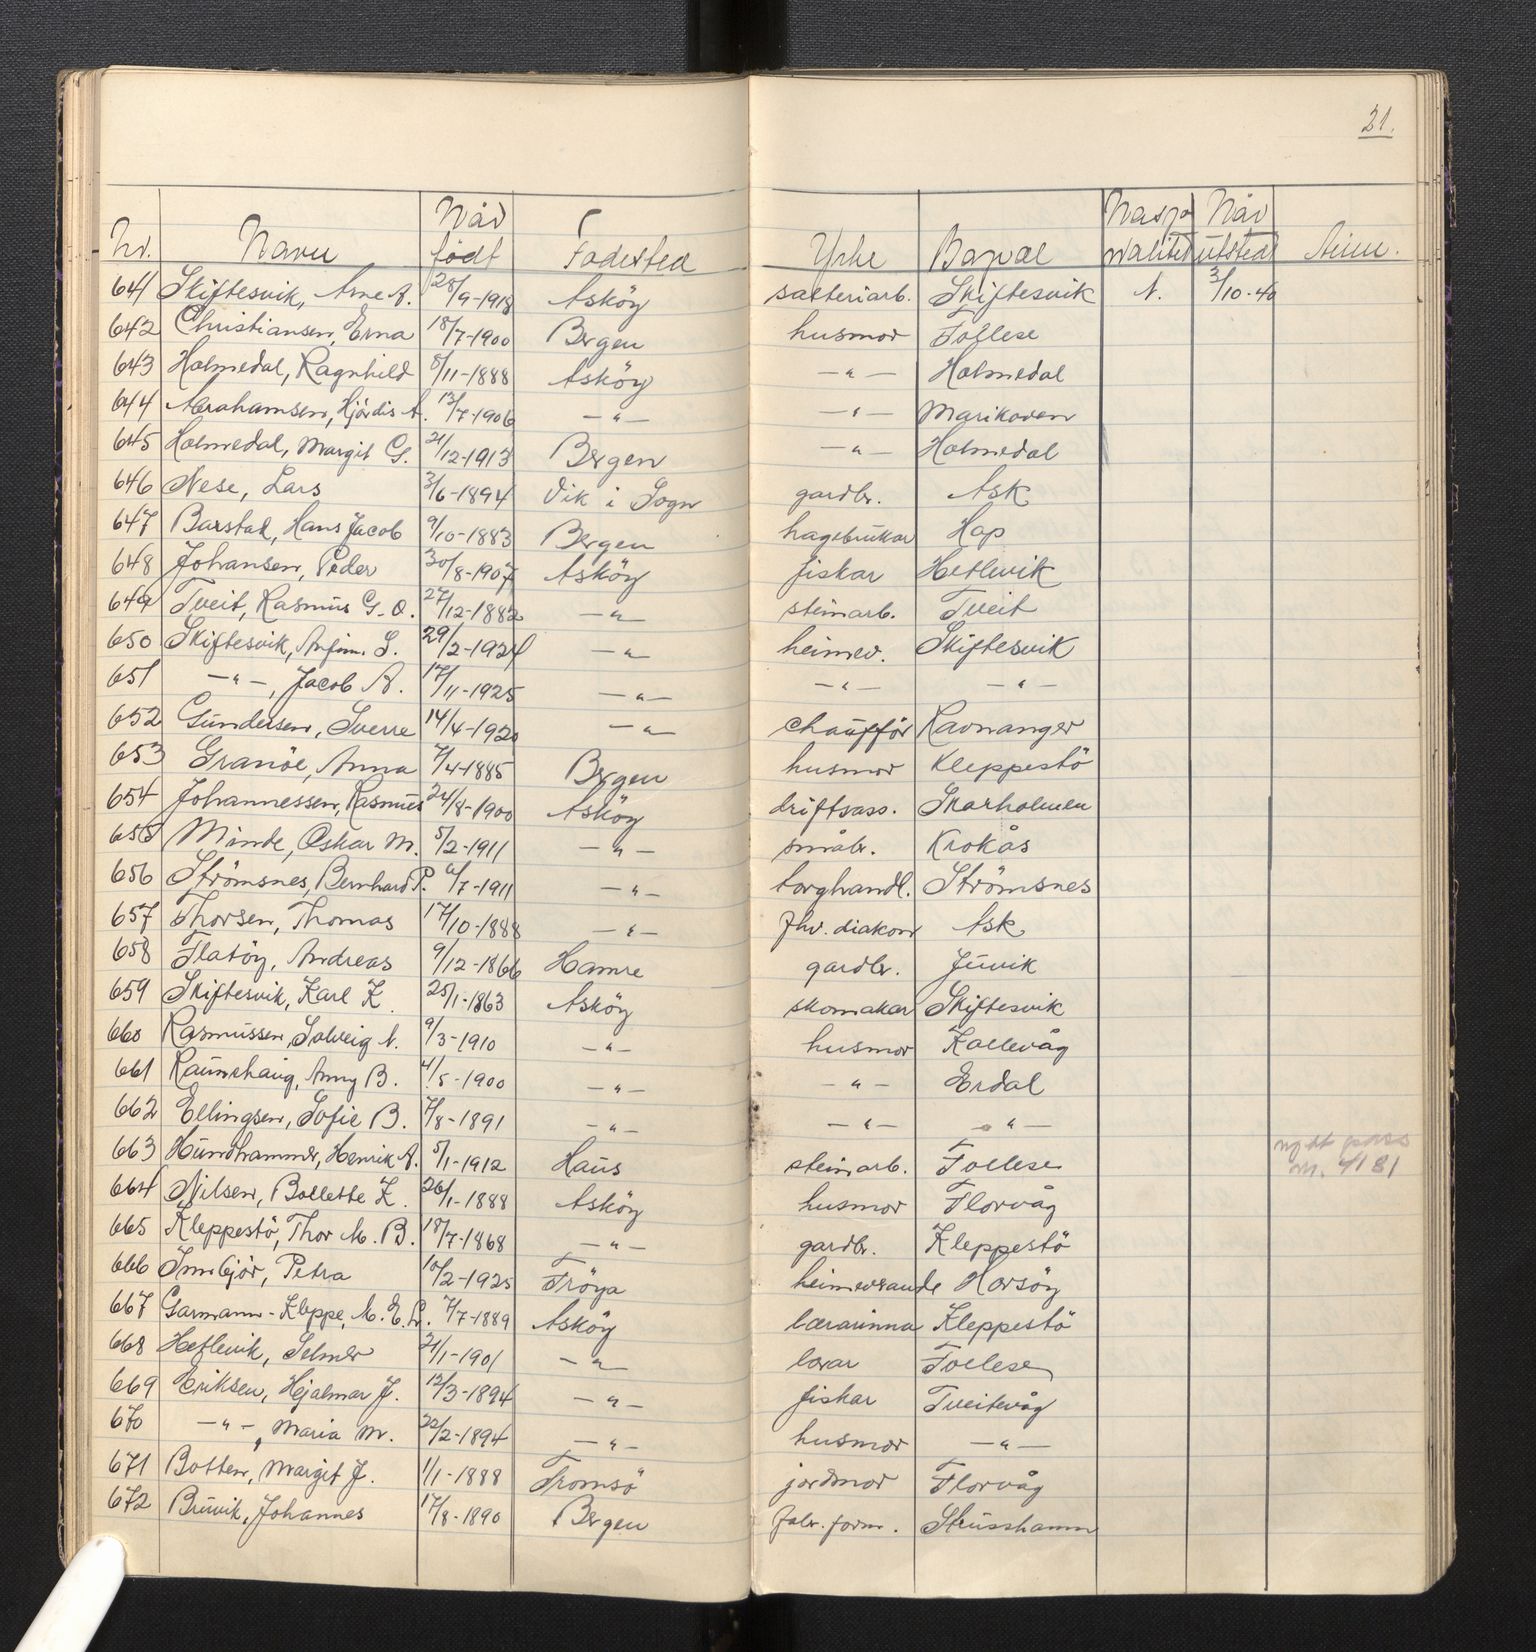 21.
Nr. Navn Når født Fødested Yrke Bopæl Nasjonalitet Når utsted Anm.
641 Skiftesvik, Arne A. 28/9-1918 Asköy sætteriarb. Skiftesvik N. 3/10-40
642 Christiansen, Erna 18/7-1900 Bergen husmor Follese
643 Holmedal, Ragnhild 8/11-1888 Asköy —"— Holmedal
644 Abrahamsen, Hjördis A. 13/7-1906 —"— —"— Marikoven
645 Holmedal, Margit G. 21/12-1913 Bergen —"— Holmedal
646 Nese, Lars 3/6-1894 Vik i Sogn gardbr. Ask
647 Barstad, Hans Jacob 9/10-1883 Bergen hagebrukar Hop
648 Johansen, Peder 30/8-1907 Asköy fiskar Hetlevik
649 Tveit, Rasmus G. O. 27/12-1882 —"— steinarb. Tveit
650 Skiftesvik, Anfin. S. 29/2-1924 —"— heimev. Skiftesvik
651 —"—, Jacob A. 17/11-1925 —"— —"— —"—
652 Gundersen, Sverre 14/4-1920 —"— chaufför Ravnanger
653 Granöe, Anna 7/4-1885 Bergen husmor Kleppestö
654 Johannessen, Rasmus 24/8-1900 Asköy driftsass. Skarholmen
655 Minde, Oskar M. 5/2-1911 —"— småbr. Krokås
656 Strömsnes, Bernhard P. 6/7-1911 —"— torghandl. Strömsnes
657 Thorsen, Thomas 17/10-1888 —"— fhv. diakon Ask
658 Flatöy, Andreas 9/12-1866 Hamre gardbr. Juvik
659 Skiftesvik, Karl K. 25/1-1863 Asköy skomakar Skiftesvik
660 Rasmussen, Solveig N. 9/3-1910 —"— husmor Kollevåg
661 Raunehaug, Anny B. 4/5-1900 —"— —"— Erdal
662 Ellingsen, Sofie B. 7/8-1891 —"— —"— —"—
663 Hundhammer, Henrik A. 5/1-1912 Haus steinarb. Follese nytt pass nr. 4181
664 Nilsen, Bollette K. 26/1-1888 Asköy husmor Florvåg
665 Kleppestö, Thor M. B. 18/7-1868 —"— gardbr. Kleppestö
666 Innbjör, Petra 10/2-1925 Fröya heimeverande Horsöy
667 Garmann-Kleppe, M. E. L. 7/7-1889 Asköy lærarinna Kleppestö
668 Hetlevik, Selmer 21/1-1901 —"— lærar Follese
669 Eriksen, Hjalmar J. 12/3-1894 —"— fiskar Tveitevåg
670 —"—, Maria M. 22/2-1894 —"— husmor —"—
671 Botten, Margit J. 1/1-1888 Tromsö jordmor Florvåg
672 Bruvik, Johannes 17/8-1890 Bergen fabr. form. Strusshamn